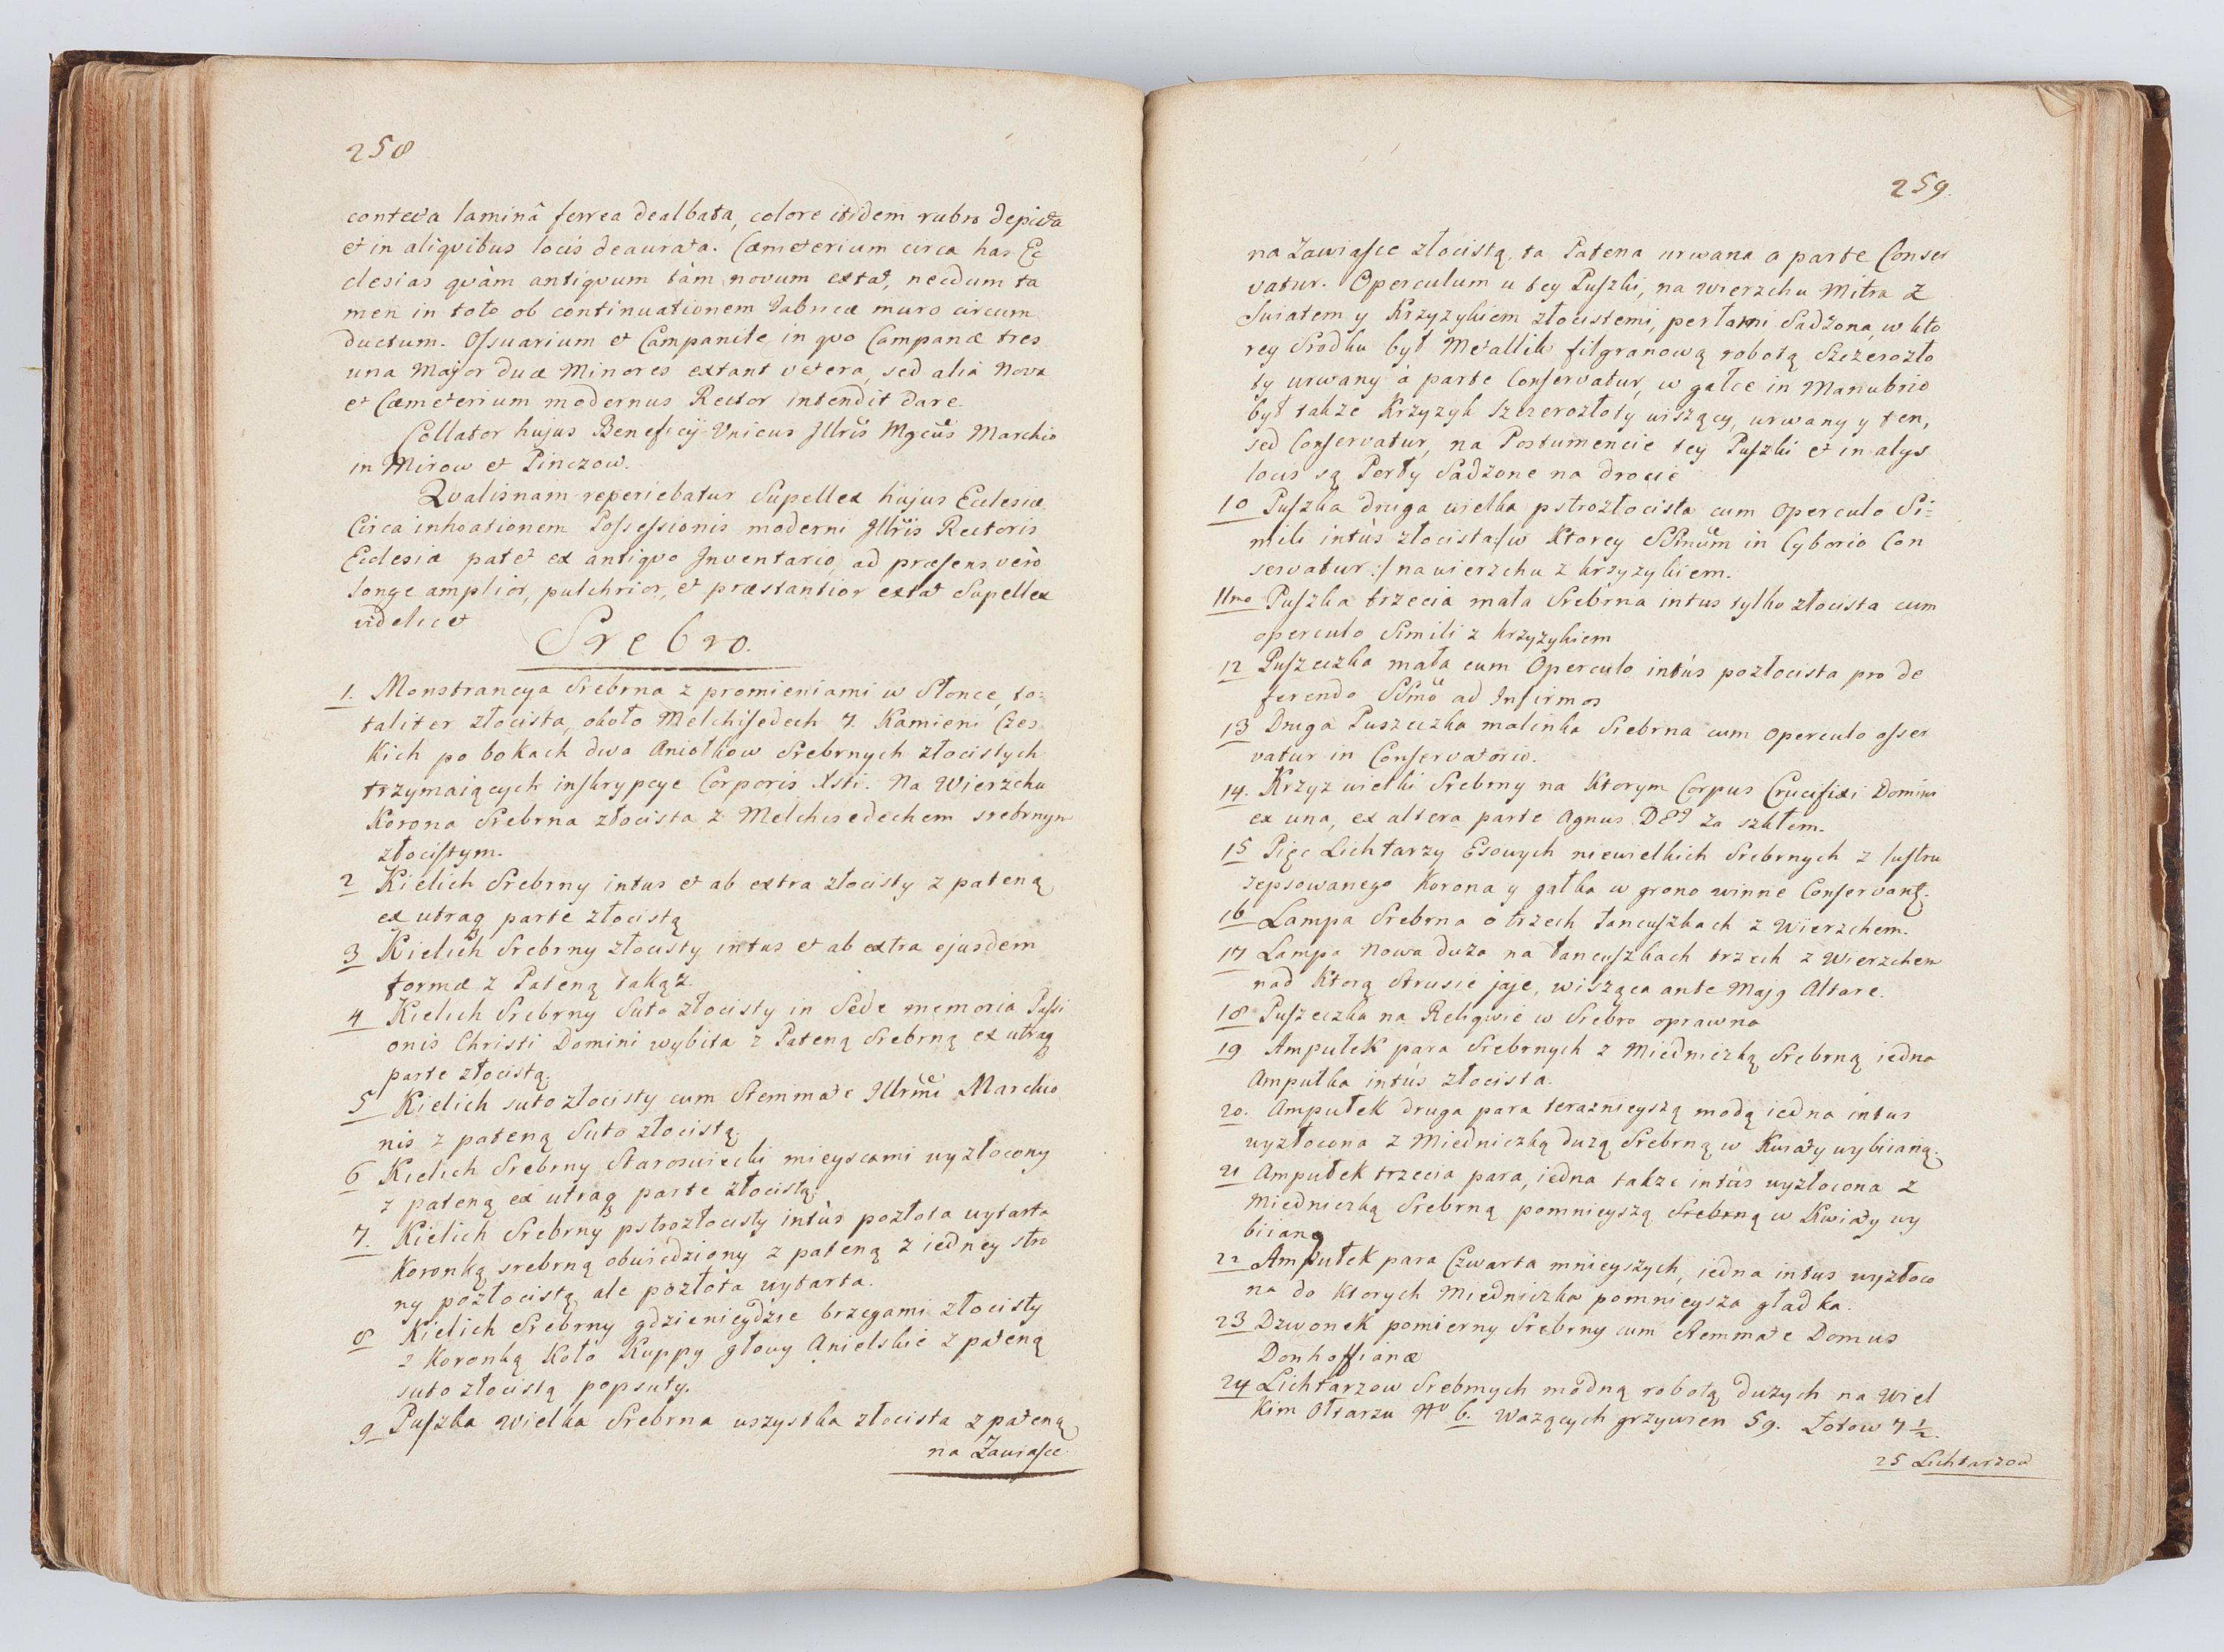 258
contecta laminâ ferrea dealbata, colore itidem rubro depicta
et in aliqvibus locis deaurata. Cæmeterium circa has Ec
clesias qvàm antiqvum tàm novum extat, necdum ta
men in toto ob continuationem Fabricæ muro circum
ductum. Ossuarium et Campanile in qvo Campanæ tres
una Major duæ Minores extant vetera, sed alia Nova
et Cæmeterium modernus Rector intendit dare.
Collator hujus Beneficÿ Unicus Illris Mgcus Marchio
in Mirow et Pinczow.
Qvalisnam reperiebatur Supellex hujus Ecclesiæ
Circa inhoationem Possessionis moderni Illris Rectoris
Ecclesiæ patet ex antiqvo Inventario, ad præsens verò
longe amplior, pulchrior, et præstantior extat Supellex
videlicet
Srebro.
1. Monstrancya Srebrna z promieniami w Słonce, to=
taliter złocista, około Melchisedech 7. Kamieni Czes
Kich po bokach dwa Aniołkow Srebrnych złocistych
trzymaiących inskrypcye Corporis Xsti. Na Wierzchu
Korona Srebrna złocista z Melchisedechem srebrnym
złocistym.
2 Kielich Srebrny intus et ab extra złocisty z pateną
ex utraq parte złocistą
3 Kielich Srebrny złocisty intus et ab extra ejusdem
formæ z Pateną takąż.
4 Kielich Srebrny Suto złocisty in Sede memoria Passi
onis Christi Domini wybita z Pateną Srebrną ex utraq
parte złocistą.
5 Kielich suto złocisty cum Stemmate Illrmi Marchio
nis z pateną Suto złocistą.
6 Kielich Srebrny Staroswiecki mieyscami wyzłocony
z pateną ex utraq parte złocistą.
7. Kielich Srebrny pstrozłocisty intùs pozłota wytarta
Koronką srebrną obwiedziony z pateną z iedney stro
ny pozłocistą ale pozłota wytarta.
8 Kielich Srebrny gdzieniegdzie brzegami złocisty
z Koronką Koło Kuppy głowy Anielskie z pateną
suto złocistą popsuty.
9 Puszka wielka Srebrna wszystka złocista z pateną
na Zawiasce
259.
na Zawiasce złocistą, ta Patena urwana a parte Conser
vatur. Operculum u tey Puszki, na wierzchu Mitra z
Swiatem y Krzyzykiem złocistemi, perłami Sadzona, w kto
rey Srodku był Metallik filgranową robotą Szczerozło
ty urwany à parte Conservatur, w gałce in Manubrio
był także Krzyzyk szczerozłoty wiszący, urwany y ten,
sed Conservatur, na Postumencie tey Puszki et in alys
locis są Perły Sadzone na drocie
10 Puszka druga wielka pstrozłocista cum operculo Si=
mili intùs złocista:/w Ktorey SSmum in Cyborio Con
servatur:/ na wierzchu z krzyzykiem.
11mo Puszka trzecia mała Srebrna intus tylko złocista cum
operculo Simili z krzyzykiem
12 Puszeczka mała cum Operculo intùs pozłocista pro de
ferendo SSmo ad Infirmos
13 Druga Puszeczka malinka Srebrna cum operculo asser
vatur in Conservatorio.
14. Krzyz wielki Srebrny na Ktorym Corpus Crucifixi Domini
ex una, ex altera parte Agnus DEI za szkłem.
15 Pięc Lichtarzy Esowych niewielkich Srebrnych z lustru
zepsowanego Korona y gałka w grono winne Conservant.
16 Lampa Srebrna o trzech łancuszkach z Wierzchem.
17 Lampa Nowa duza na łancuszkach trzech z Wierzchem
nad Ktorą Strusie jaje, wisząca ante Majq Altare.
18 Puszeczka na Reliqwie w Srebro oprawna
19 Ampułek para Srebrnych z Miedniczką Srebrną iedna
Ampułka intùs złocista.
20. Ampułek druga para teraznieyszą modą iedna intus
wyzłocona z Miedniczką duzą Srebrną w Kwiaty wybiianą.
21 Ampułek trzecia para, iedna takze intùs wyzłocona z
Miedniczką Srebrną pomnieyszą Srebrną w Kwiaty wy
biianą
22 Ampułek para Czwarta mnieyszych, iedna intus wyzłoco
na do Ktorych Miedniczka pomnieysza gładka.
23 Dzwonek pomierny Srebrny cum Stemmate Domus
Donhoffianæ
24 Lichtarzow Srebrnych modną robotą duzych na Wiel
Kim Ołtarzu No 6. Wazących grzywien 59. Łotow 7 ½.
25 Lichtarzow